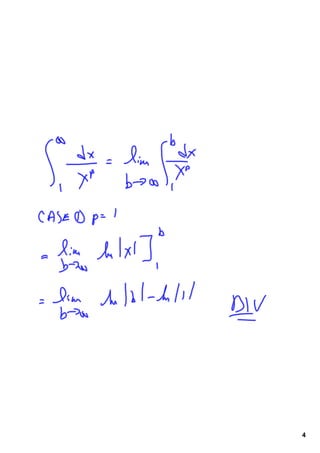 ∫₁^∞ dx/x^p = lim b→∞ ∫₁^b dx/x^p
CASE ① p = 1
= lim b→∞ ln |x| ]₁^b
= lim b→∞ ln |b| - ln |1| DIV
4